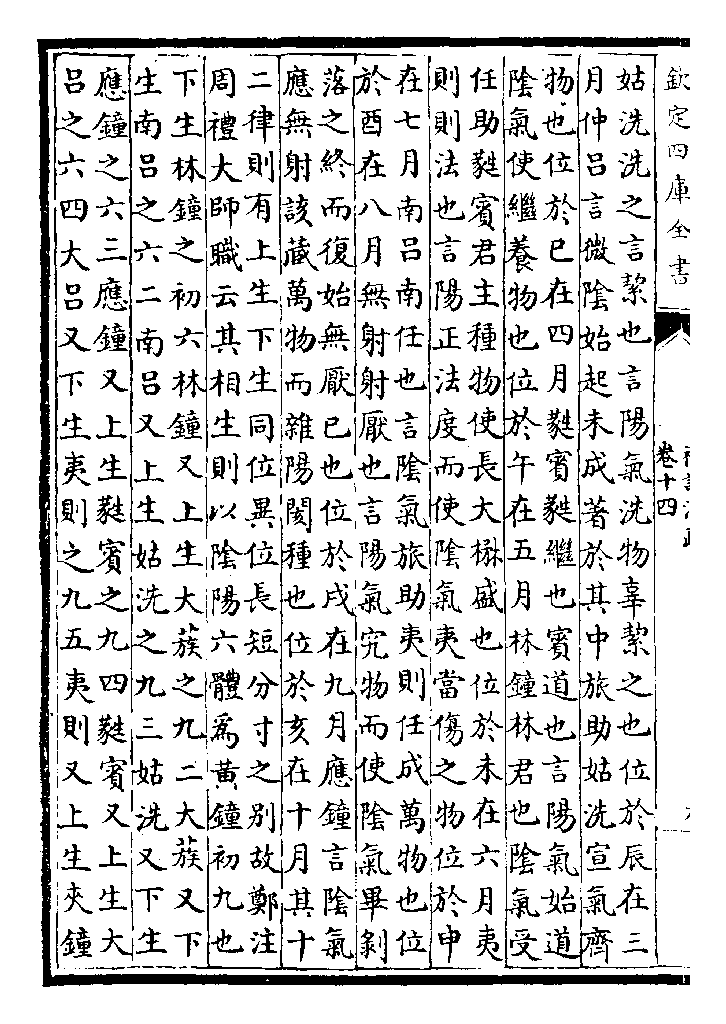 欽定四庫全書
卷十四
姑洗洗之言絜也言陽氣洗物辜絜之也位於辰在三
月仲呂言微陰始起未成著於其中旅助姑洗宣氣齊
物也位於巳在四月蕤賓蕤繼也賓道也言陽氣始道
陰氣使繼養物也位於午在五月林鐘林君也陰氣受
任助蕤賓君主種物使長大楙盛也位於未在六月夷
則則法也言陽正法度而使陰氣夷當傷之物位於申
在七月南呂南任也言陰氣旅助夷則任成萬物也位
於酉在八月無射射厭也言陽氣究物而使陰氣畢剝
落之終而復始無厭已也位於戌在九月應鐘言陰氣
應無射該藏萬物而雜陽閡種也位於亥在十月其十
二律則有上生下生同位異位長短分寸之别故鄭注
周禮大師職云其相生則以陰陽六體為黄鐘初九也
下生林鐘之初六林鐘又上生大蔟之九二大蔟又下
生南呂之六二南呂又上生姑洗之九三姑洗又下生
應鐘之六三應鐘又上生蕤賓之九四蕤賓又上生大
呂之六四大呂又下生夷則之九五夷則又上生夾鐘